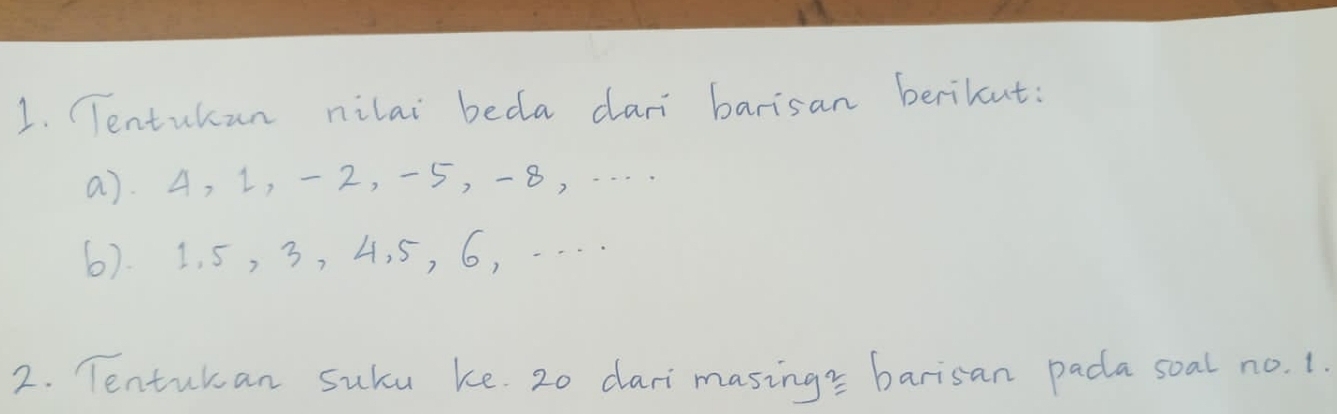 1. Tentukan nilai beda dari barisan berikut:
a). 4, 1, -2, -5, -8, ....
b). 1,5, 3, 4,5, 6, ....
2. Tentukan suku ke. 20 dari masing2 barisan pada soal no. 1.